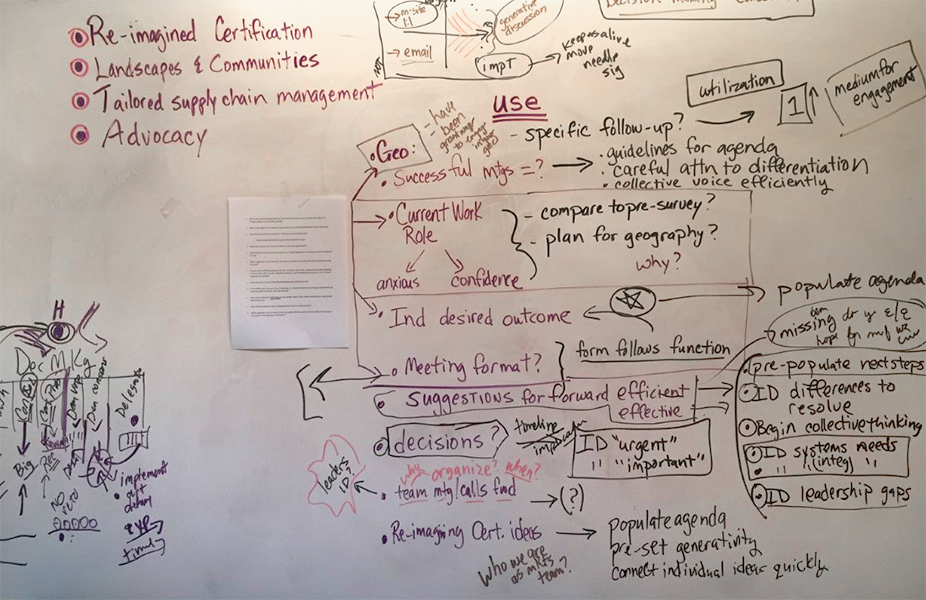 Re-imagined Certification
Landscapes & Communities
Tailored supply chain management
Advocacy
on-site
1:1
→ email
generative
discussion
impt
keeps alive
move
needle
sig
utilization
1
medium for
engagement
USE
Geo:
= have
been
- specific follow-up?
• Successful mtgs = ?
• guidelines for agenda
• careful attn to differentiation
• collective voice efficiently
• Current Work
Role
anxious
confidence
- compare to pre-survey?
- plan for geography?
why?
• Ind desired outcome
populate agenda
missing
hope
• Meeting format?
form follows function
• Suggestions for forward efficient
effective
• pre-populate next steps
ID differences to
resolve
Begin collective thinking
ID systems needs
" (integ) "
ID leadership gaps
decisions?
timeline
ID "urgent"
" " "important"
leaders
ID?
why organize? when?
• team mtg/calls fwd
(?)
• Re-imagining Cert. ideas
populate agenda
pre-set generativity
connect individual ideas quickly
Who we are
as mkts
team?
H
Big
NO
Delegate
• implement